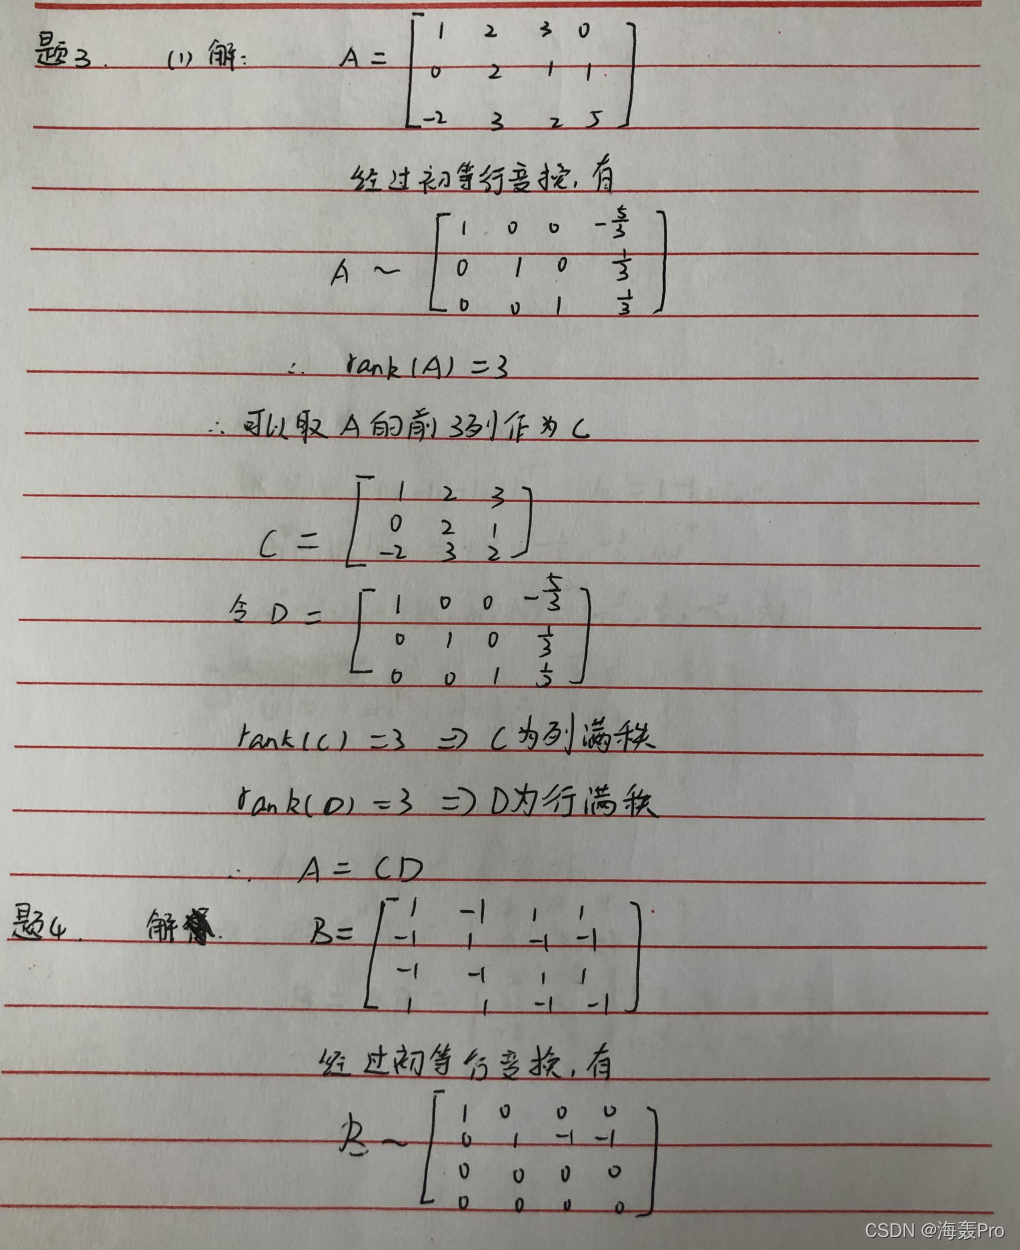 题3. (1) 解: A = [ 1 2 3 0
0 2 1 1
-2 3 2 5 ]
经过初等行变换,有
A ~ [ 1 0 0 -5/3
0 1 0 1/3
0 0 1 1/3 ]
∴ rank(A) = 3
∴ 可以取 A 的前 3列 作为 C
C = [ 1 2 3
0 2 1
-2 3 2 ]
令 D = [ 1 0 0 -5/3
0 1 0 1/3
0 0 1 1/3 ]
rank(C) = 3 => C 为列满秩
rank(D) = 3 => D 为行满秩
∴ A = CD
题4. 解. B = [ 1 -1 1 1
-1 1 -1 -1
-1 -1 1 1
1 1 -1 -1 ]
经过初等行变换,有
B ~ [ 1 0 0 0
0 1 -1 -1
0 0 0 0
0 0 0 0 ]
CSDN @海轰Pro